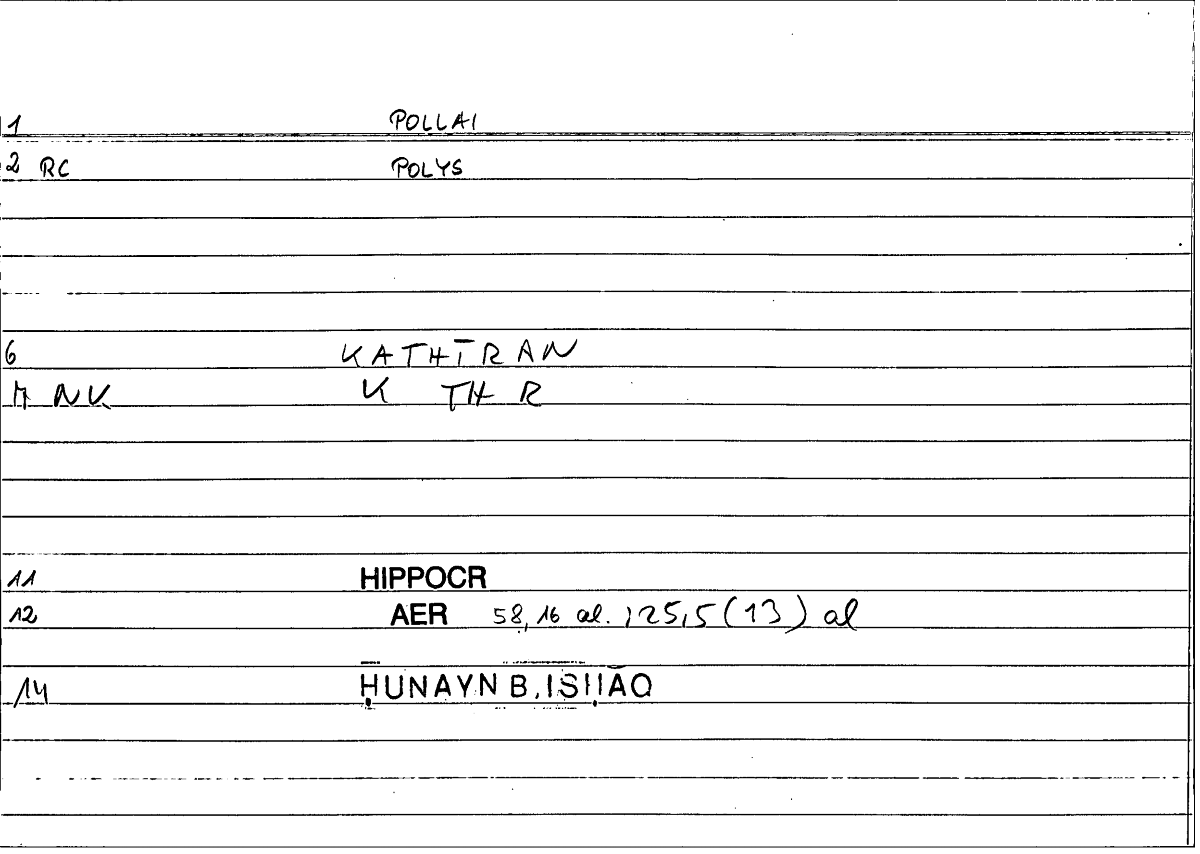 1 POLLAI
2 RC POLYS
6 KATHĪRAN
7 NK K TH R
11 HIPPOCR
12 AER 58,16 al. ; 25,5 (13) al
14 ḤUNAYN B. ISḤĀQ